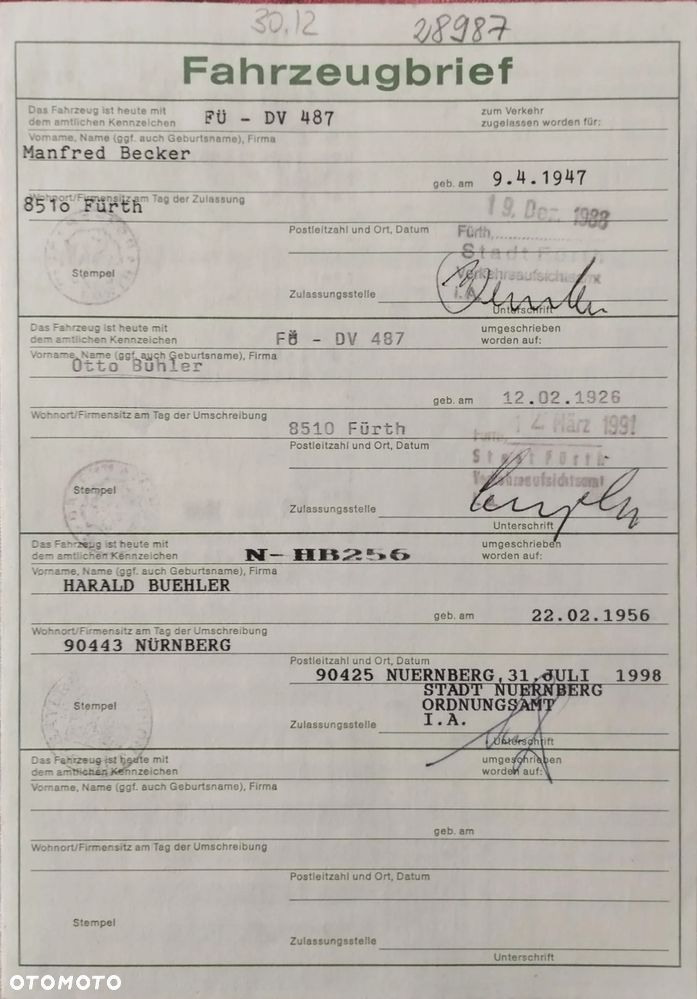 30.12 28987
Fahrzeugbrief
Das Fahrzeug ist heute mit
dem amtlichen Kennzeichen FÜ - DV 487 zum Verkehr
zugelassen worden für:
Vorname, Name (ggf. auch Geburtsname), Firma
Manfred Becker
geb. am 9.4.1947
Wohnort/Firmensitz am Tag der Zulassung
851o Fürth
19. Dez. 1988
Postleitzahl und Ort, Datum Fürth,
Stadt Fürth
Stempel Verkehrsaufsichtsamt
Zulassungsstelle I.A.
Unterschrift
Das Fahrzeug ist heute mit
dem amtlichen Kennzeichen FÜ - DV 487 umgeschrieben
worden auf:
Vorname, Name (ggf. auch Geburtsname), Firma
Otto Bühler
geb. am 12.02.1926
Wohnort/Firmensitz am Tag der Umschreibung
8510 Fürth 14. März 1991
Postleitzahl und Ort, Datum
Stadt Fürth
Stempel Verkehrsaufsichtsamt
Zulassungsstelle
Unterschrift
Das Fahrzeug ist heute mit
dem amtlichen Kennzeichen N-HB256 umgeschrieben
worden auf:
Vorname, Name (ggf. auch Geburtsname), Firma
HARALD BUEHLER
geb. am 22.02.1956
Wohnort/Firmensitz am Tag der Umschreibung
90443 NÜRNBERG
Postleitzahl und Ort, Datum
90425 NUERNBERG,31.JULI 1998
STADT NUERNBERG
Stempel ORDNUNGSAMT
Zulassungsstelle I.A.
Unterschrift
Das Fahrzeug ist heute mit
dem amtlichen Kennzeichen umgeschrieben
worden auf:
Vorname, Name (ggf. auch Geburtsname), Firma
geb. am
Wohnort/Firmensitz am Tag der Umschreibung
Postleitzahl und Ort, Datum
Stempel
Zulassungsstelle
Unterschrift
OTOMOTO